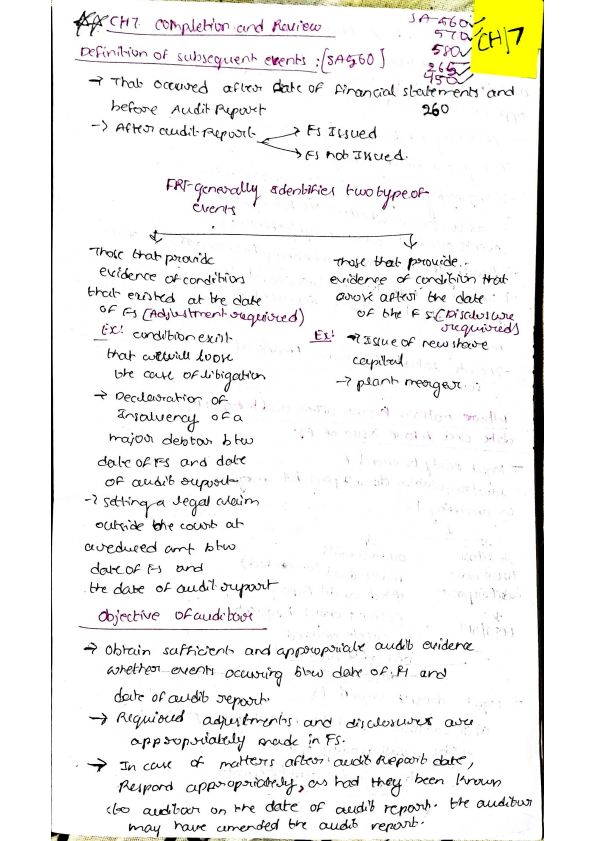 CH7. Completion and Review
SA-560
570
580
265
450
260
CH|7
Definition of subsequent events: [SA 560]
→ That occured after date of financial statements and
before Audit Report
→ After audit Report → FS Issued
→ FS not Issued.
FRF generally identifies two type of
events
Those that provide
evidence of conditions
that existed at the date
of FS (Adjustment required)
Ex: condition exist
that will loose
the case of litigation
→ Declaration of
Insolvency of a
major debtor btw
date of FS and date
of audit report
→ setting a legal claim
outside the court at
a reduced amt btw
date of FS and
the date of audit report
Those that provide
evidence of condition that
arose after the date
of the FS (Disclosure
required)
Ex: → Issue of new share
capital
→ plant merger
Objective of auditor
→ Obtain sufficient and appropriate audit evidence
whether events occuring btw date of FS and
date of audit report.
→ Required adjustments and disclosures are
appropriately made in FS.
→ In case of matters after audit Report date,
Respond appropriately, as had they been known
to auditor on the date of audit report. the auditor
may have amended the audit report.